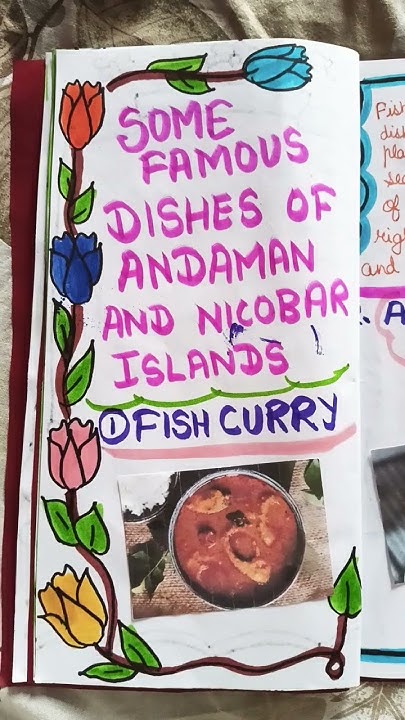 SOME
FAMOUS
DISHES OF
ANDAMAN
AND NICOBAR
ISLANDS
① FISH CURRY
Fish
dis
pla
sea
of
righ
and
. A